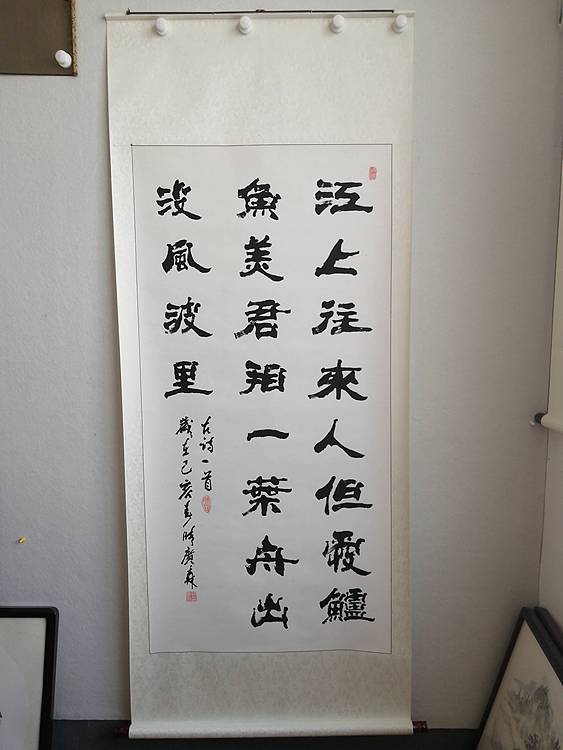 江上往來人但愛鱸
魚美君看一葉舟出
没風波里
古詩一首
歲在己亥春時廣森